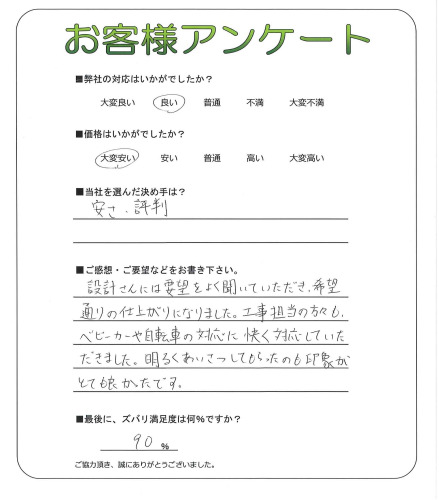 お客様アンケート
■弊社の対応はいかがでしたか?
大変良い 良い 普通 不満 大変不満
■価格はいかがでしたか?
大変安い 安い 普通 高い 大変高い
■当社を選んだ決め手は?
安さ、評判
■ご感想・ご要望などをお書き下さい。
設計さんには要望をよく聞いていただき、希望
通りの仕上がりになりました。工事担当の方々も、
ベビーカーや自転車の対応に快く対応していた
だきました。明るくあいさつしてもらったのも印象が
とても良かったです。
■最後に、ズバリ満足度は何%ですか?
90 %
ご協力頂き、誠にありがとうございました。